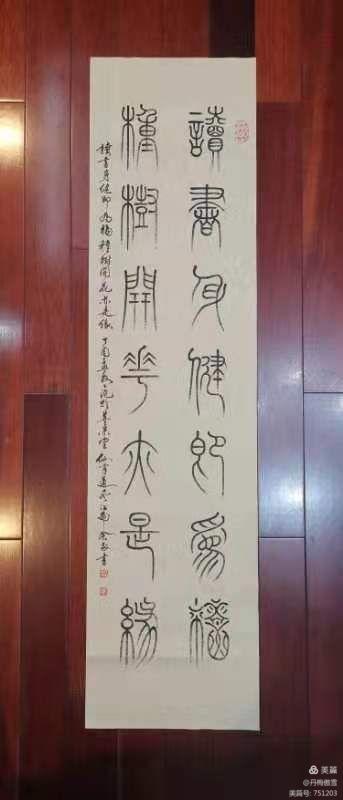 讀書身健即為福
種樹開華亦是緣
讀書身健即為福 種樹開花亦是緣 丁酉孟秋 書
美篇
@丹梅傲雪
美篇号: 751203